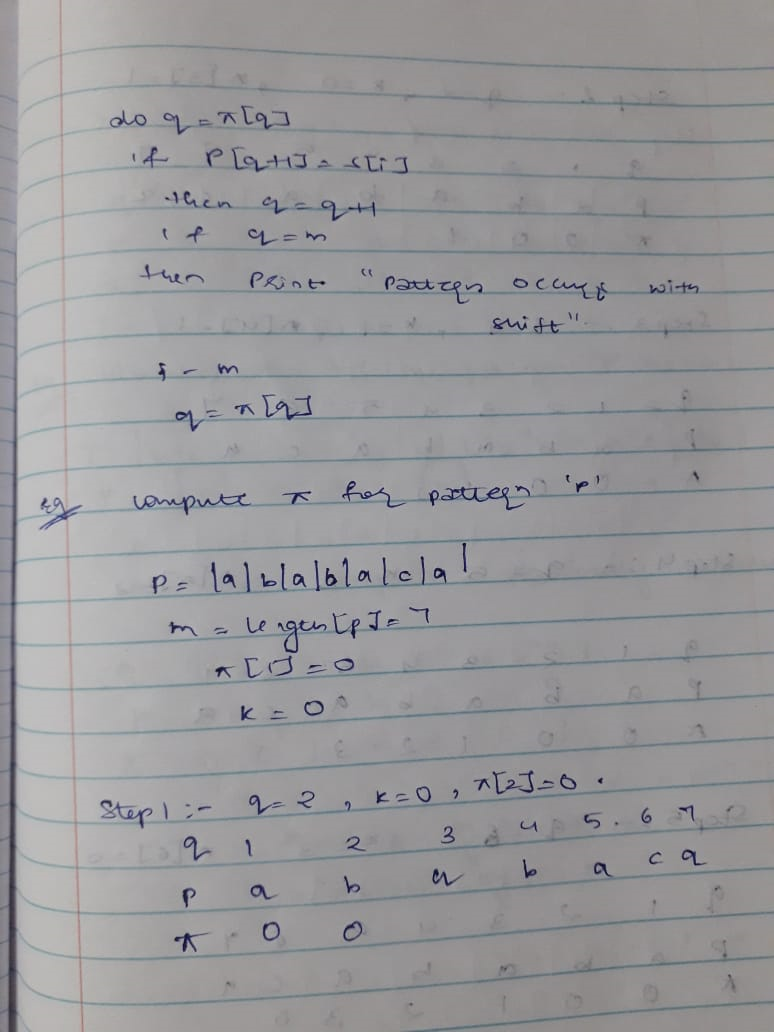 do q = π[q]
if P[q+1] = s[i]
then q = q+1
if q = m
then print "pattern occurs with
shift"
i - m
q = π[q]
eg compute π for pattern 'p'
P = |a|b|a|b|a|c|a|
m = length[p] = 7
π[1] = 0
K = 0
Step 1 :- q = 2 , K = 0 , π[2] = 0 .
q 1 2 3 4 5. 6 7
P a b a b a c a
π 0 0